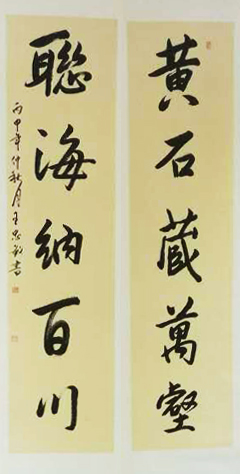 黄石藏萬壑
聯海納百川
丙申年仲秋月王忠敏書